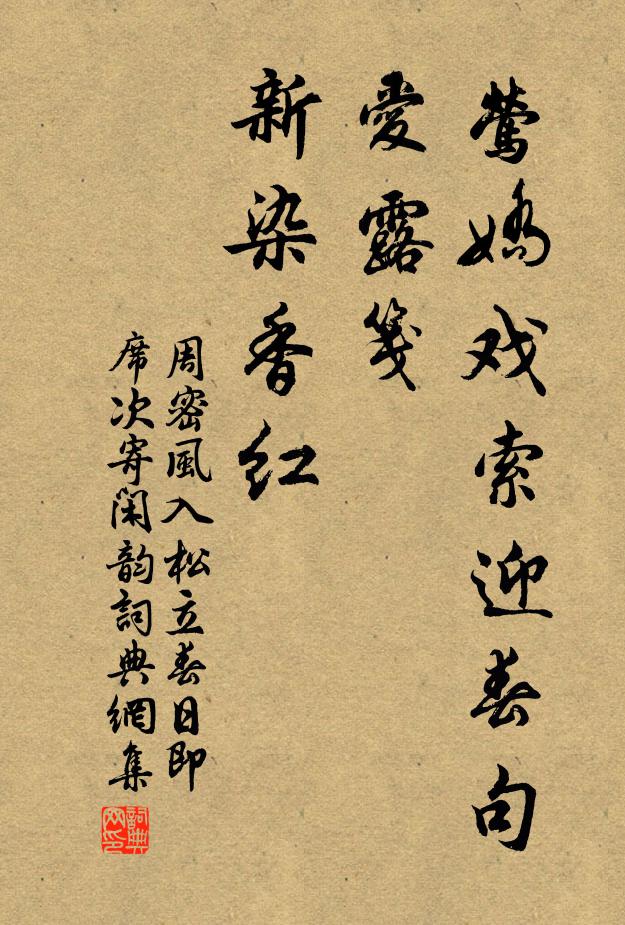 莺嬌戏索迎春句
愛露箋
新染香红
周密風入松立春日即
席次寄閑韵詞典網集
詞典
网印